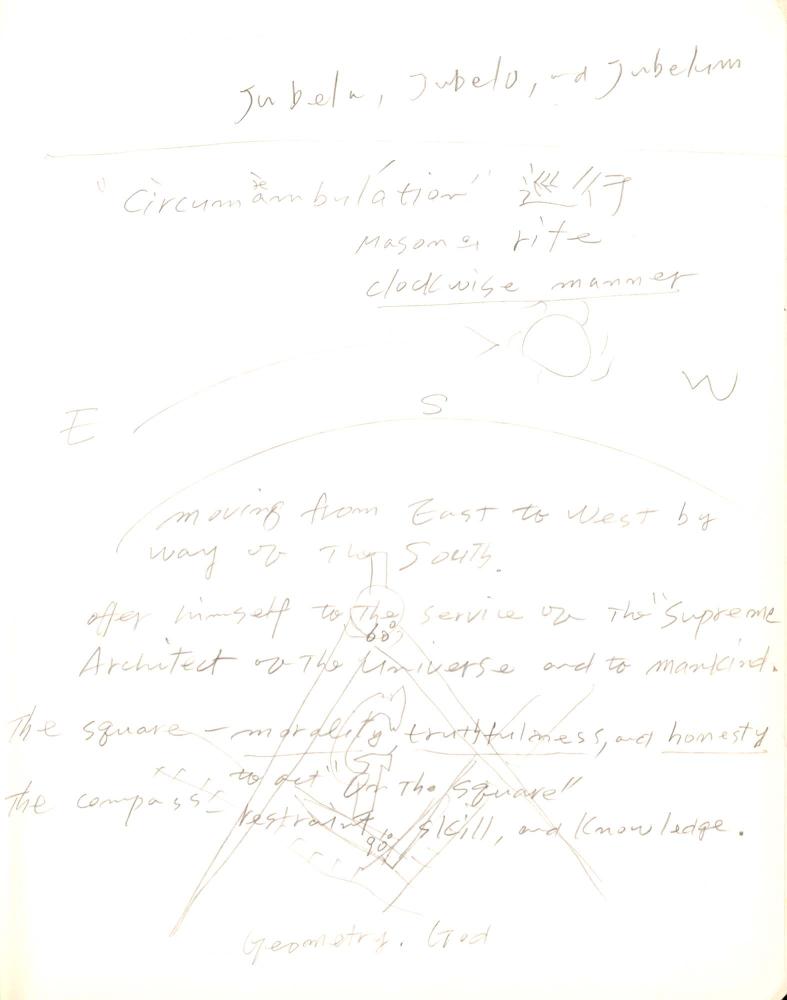 Jubela, Jubelo, and Jubelum
"Circumambulation" 巡行
Mason의 rite
clockwise manner
W
S
E
moving from East to West by
way of The South.
offer himself to The service of The "Supreme
60°
Architect of The Universe and to mankind.
The square - morality, truthfulness, and honesty
to act "On The square"
The compass - restraint, skill, and Knowledge.
90°
G
Geometry. God